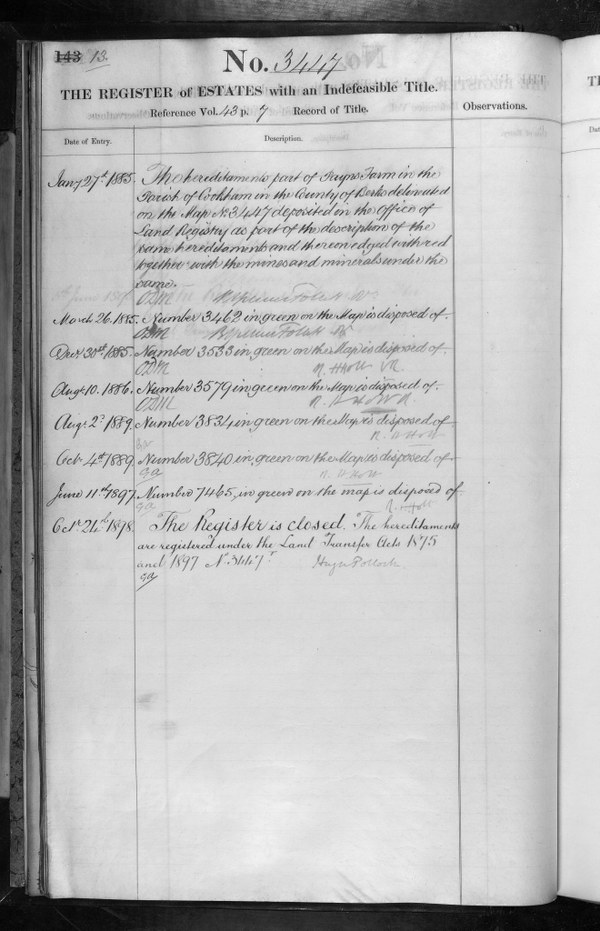 143 13.
No. 3447
THE REGISTER of ESTATES with an Indefeasible Title.
Reference Vol. 43 p. 7 Record of Title.
Observations.
Date of Entry. Description.
Jany 27th 1885. The hereditaments part of Payns Farm in the
Parish of Cookham in the County of Berks delineated
on the Map No. 3447 deposited in the Office of
Land Registry as part of the description of the
same hereditaments and thereon edged with red
together with the mines and minerals under the
same.
March 26. 1885. Number 3462 in green on the Map is disposed of.
Decr 30th 1885. Number 3533 in green on the Map is disposed of.
R. H Holt
Augt 10. 1886. Number 3579 in green on the Map is disposed of.
Augt 2d 1889. Number 3834 in green on the Map is disposed of
R. H Holt
Octr 4th 1889. Number 3840 in green on the Map is disposed of
R. H Holt
June 11th 1897. Number 7465, in green on the map is disposed of
R. H Holt
Octr 24th 1898. The Register is closed. The hereditaments
are registered under the Land Transfer Acts 1875
and 1897 No. 3447
Hugh Pollock